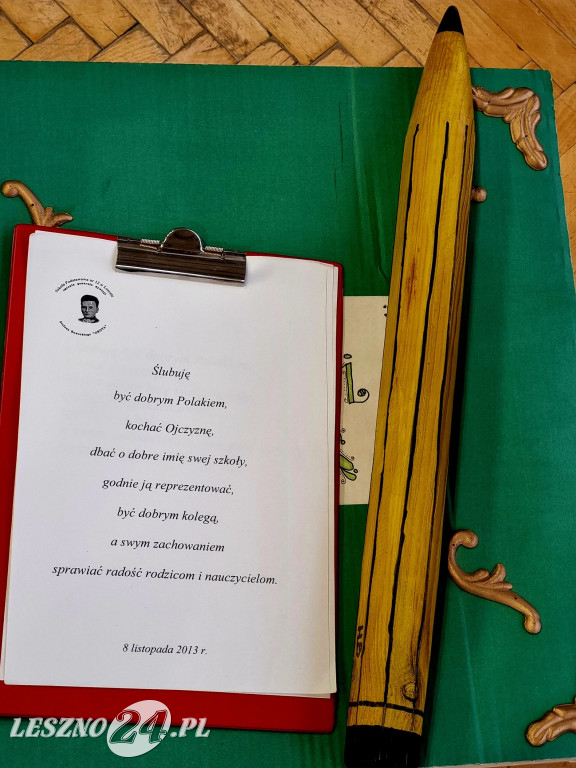 Szkoła Podstawowa nr 12 w Lesznie
Ślubuję
być dobrym Polakiem,
kochać Ojczyznę,
dbać o dobre imię swej szkoły,
godnie ją reprezentować,
być dobrym kolegą,
a swym zachowaniem
sprawiać radość rodzicom i nauczycielom.
8 listopada 2013 r.
HB
LESZNO24.PL